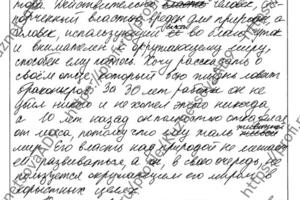 рода. Действительно, человек,
ный властью вреден для природы, а
человек, использующий её во благо, чуток
и внимателен к окружающему миру,
способен ему помочь. Хочу рассказать о
своём отце, который всю жизнь ловит
браконьеров. За 30 лет работы он не
убил никого и не хотел этого никогда
а 10 лет назад он полностью отказался
от мяса, потому что ему жаль животный
мир. Его власть над природой не мешает
ей развиваться, а он, в свою очередь, не
пользуется окружающим его миром в
корыстных целях.